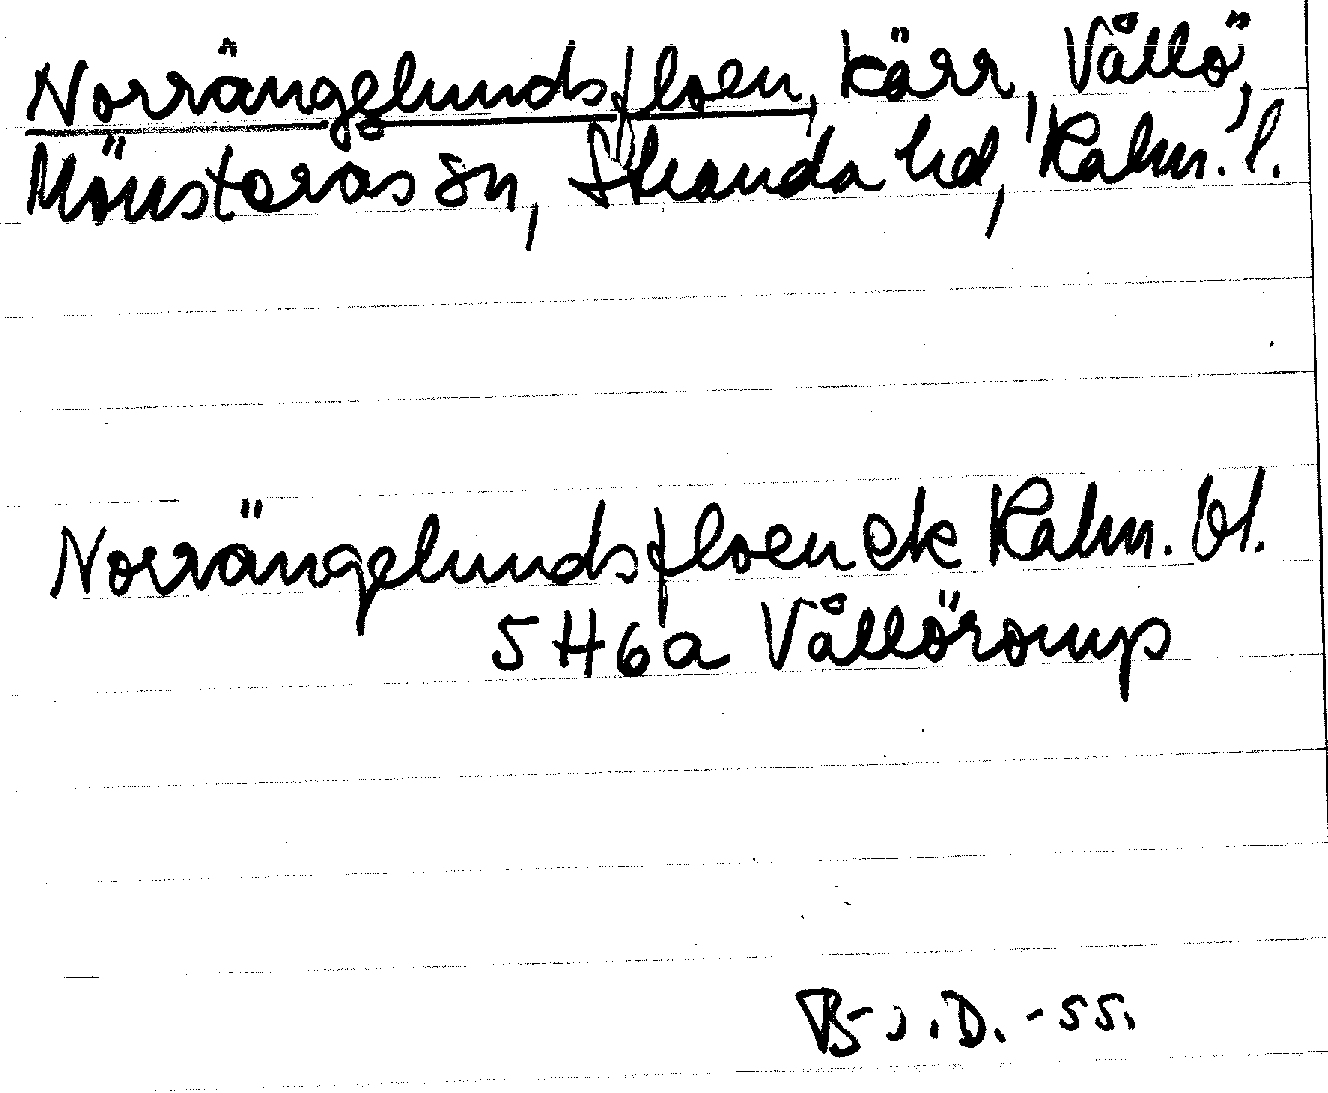 Norrängelundsfloen, kärr, Vållö,
Mönsterås sn, Stranda hd, Kalm. l.
Norrängelundsfloen ek Kalm. bl.
5 H 6 a Vållöromp
B-J. D. -55.